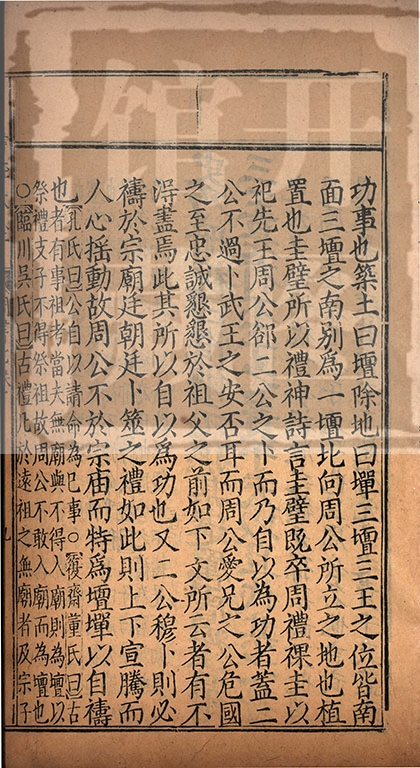 功事也築土曰壇除地曰墠三壇三王之位皆南
面三壇之南別爲一壇北向周公所立之地也植
置也圭璧所以禮神詩言圭璧既卒周禮祼圭以
祀先王周公郤二公之卜而乃自以為功者蓋二
公不過卜武王之安否耳而周公愛兄之公危國
之至忠誠懇懇於祖父之前如下文所云者有不
淂盡焉此其所以自以爲功也又二公穆卜則必
禱於宗廟廷朝廷卜筮之禮如此則上下宣騰而
人心揺動故周公不於宗庙而特爲壇墠以自禱
也
孔氏曰公自以請命為巳事○復齋董氏曰古
者有事祖考當夫無廟與不得入廟則為壇以
祭禮支子不得祭祖故周公不敢入廟而為壇也
○臨川吳氏曰古禮凡於遠祖之無廟者及宗子
開
館